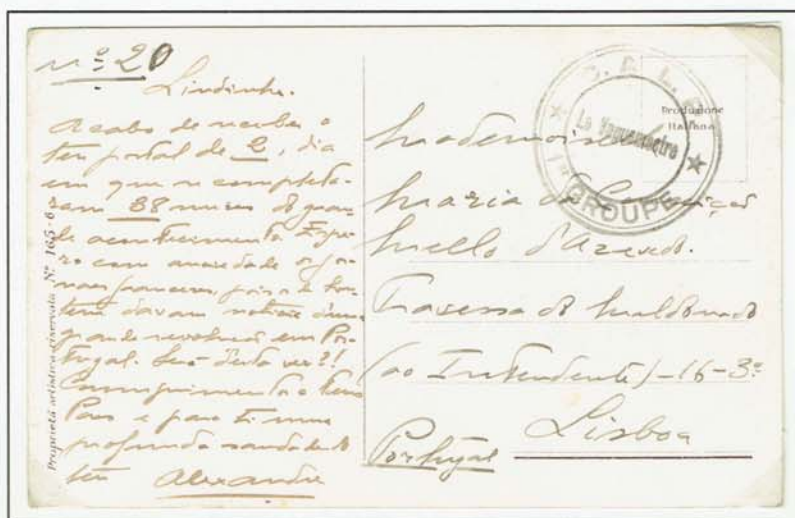 nº 20
Lindinha.
Acabo de receber o
teu postal de 2, dia
em que se completa-
ram 38 meses do gran-
de acontecimento. Espe-
ro com anciedade os jor-
naes franceses, pois os de hon-
tem davam noticia d'uma
grande revolução em Por-
tugal. Será desta vez?!
Comprimenta os teus
Paes e para ti uma
profunda saudade do
teu Alexandre
Proprietà artistica riservata Nº 165-6
1er GROUPE
Le Vaguemestre
Produzione
Italiana
Mademoiselle
Maria da Conceição
Mello d'Azevedo.
Travessa do Maldonado
(ao Intendente) - 16 - 3º
Lisboa
Portugal